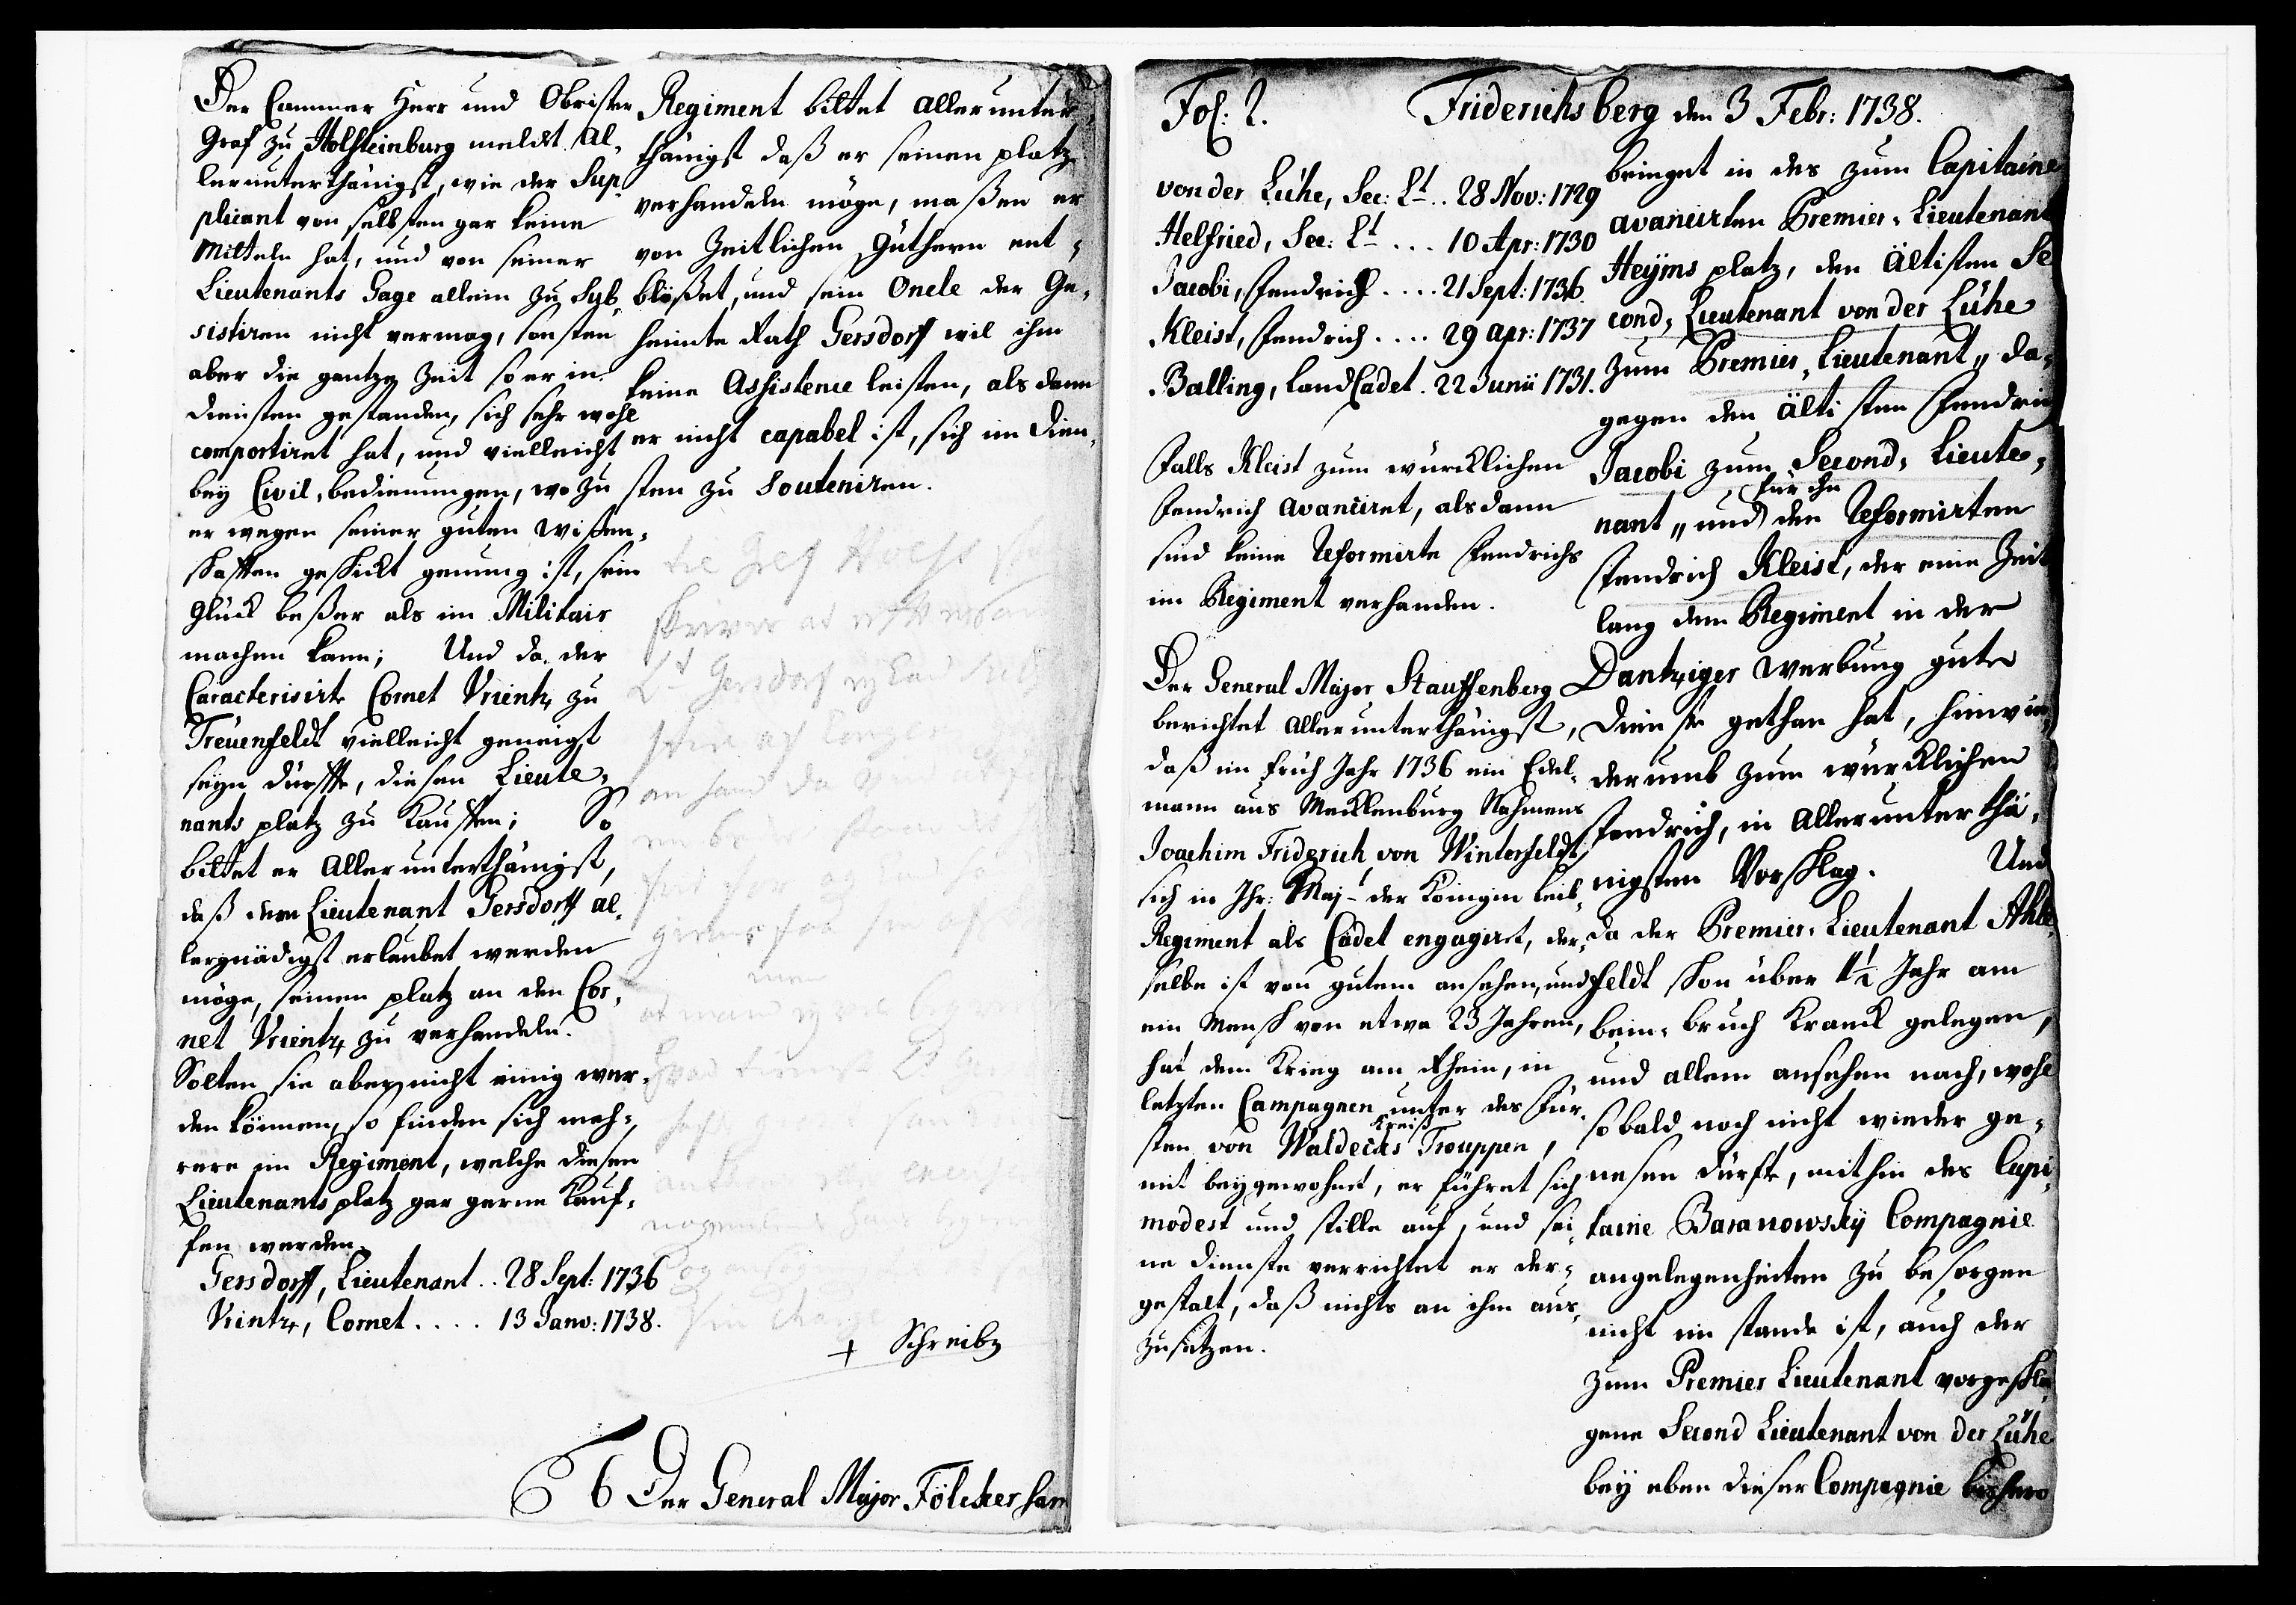 Der Cammer Herr und Obrister
Graf zu Holsteinburg meldet al-
lerunterthänigst, wie der Sup
plicant von selbsten gar keine
Mitteln hat, und von seiner
Lieutenants Gage allein zu sub,
sistiren nicht vermag, sonsten
aber die gantze Zeit so er in
diensten gestanden, sich sehr wohl
comportiret hat, und vielleicht
bey Civil-bedienungen, wo zu
er wegen seiner guten wißen,
schafften geschickt genung ist, sein
Glück beßer als im Militair
machen kann; Und da der
Caracterisirte Cornet Vrientz zu
Treuenfeldt vielleicht geneigt
seyn dürffte, diesen Lieute,
nants platz zu kauffen; So
bittet er Allerunterthänigst,
daß dem Lieutenant Gersdorff al,
lergnädigst erlaubet werden
möge, seinen platz an den Cor,
net Vrientz zu verhandeln.
Solten sie aber nicht einig wer,
den können, so finden sich meh,
rere im Regiment, welche diesen
Lieutenants platz gar gerne kauf,
fen werden.
Gersdorff, Lieutenant .. 28 Sept: 1736
Vrintz, Cornet .... 13 Janv: 1738.
Regiment bittet allerunter,
thänigst daß er seinen platz
verhandeln möge, maßen er
von Zeitlichen Güthern ent,
blößet, und sein Oncle der Ge,
heimte Rath Gersdorff wil ihm
keine Assistence leisten, als dann
er nicht capabel ist, sich im dien,
sten zu souteniren.
Lt Gersdorf
+ Schreibz
6 Der General Major Fölckersam
Fol: 2. Friderichsberg den 3 Febr: 1738.
von der Lühe, Sec: Lt .. 28 Nov: 1729
Helfried, Sec: Lt ... 10 Apr: 1730
Jacobi, Fendrich .... 21 Sept: 1736
Kleist, Fendrich .... 29 Apr: 1737
Balling, LandCadet . 22 Junii 1731.
Falls Kleist zum würcklichen
Fendrich avanciret, alsdann
sind keine Reformirte Fendrichs
im Regiment verhanden.
Der General Major Stauffenberg
berichtet Allerunterthänigst,
daß im früh Jahr 1736 ein Edel,
mann aus Mecklenburg Nahmens
Joachim Friderich von Winterfeldt
sich in Ihr: Majt der Königin leib,
Regiment als Cadet engagiret, der,
selbe ist von gutem ansehen, und
ein Mensch von etwa 23 Jahren,
hat dem Krieg am Rhein, in
letzten Campagnen unter des Für,
sten von Waldecks Kreiß Trouppen,
mit beygewohnet, er führet sich
modest und stille auf, und sei,
ne dienste verrichtet er der,
gestalt, daß nichts an ihm aus,
zusetzen.
bringet in des zum Capitaine
avancirten Premier-Lieutenant
Heyms platz, den ältisten Se
cond, Lieutenant von der Lühe
zum Premier, Lieutenant„ da,
gegen den ältisten Fendrich
Jacobi zum Second, Lieute,
nant„ und für ihn den Reformirten
Fendrich Kleist, der eine Zeit
lang dem Regiment in der
Dantziger Werbung gute
dienste gethan hat, hinwie,
derumb zum würcklichen
Fendrich, in Allerunterthä,
nigsten Vorschlag. Und
da der Premier-Lieutenant Ahle,
feldt schon über 1½ Jahr am
bein-bruch kranck gelegen,
und allem ansehen nach, wohl
so bald noch nicht wieder ge,
nesen dürfte, mithin des Capi,
taine Baranowsky Compagnie
angelegenheiten zu besorgen
nicht im stande ist, auch der
zum Premier Lieutenant vorgeschla,
gene Second Lieutenant von der Lühe
bey eben dieser Compagnie bishero